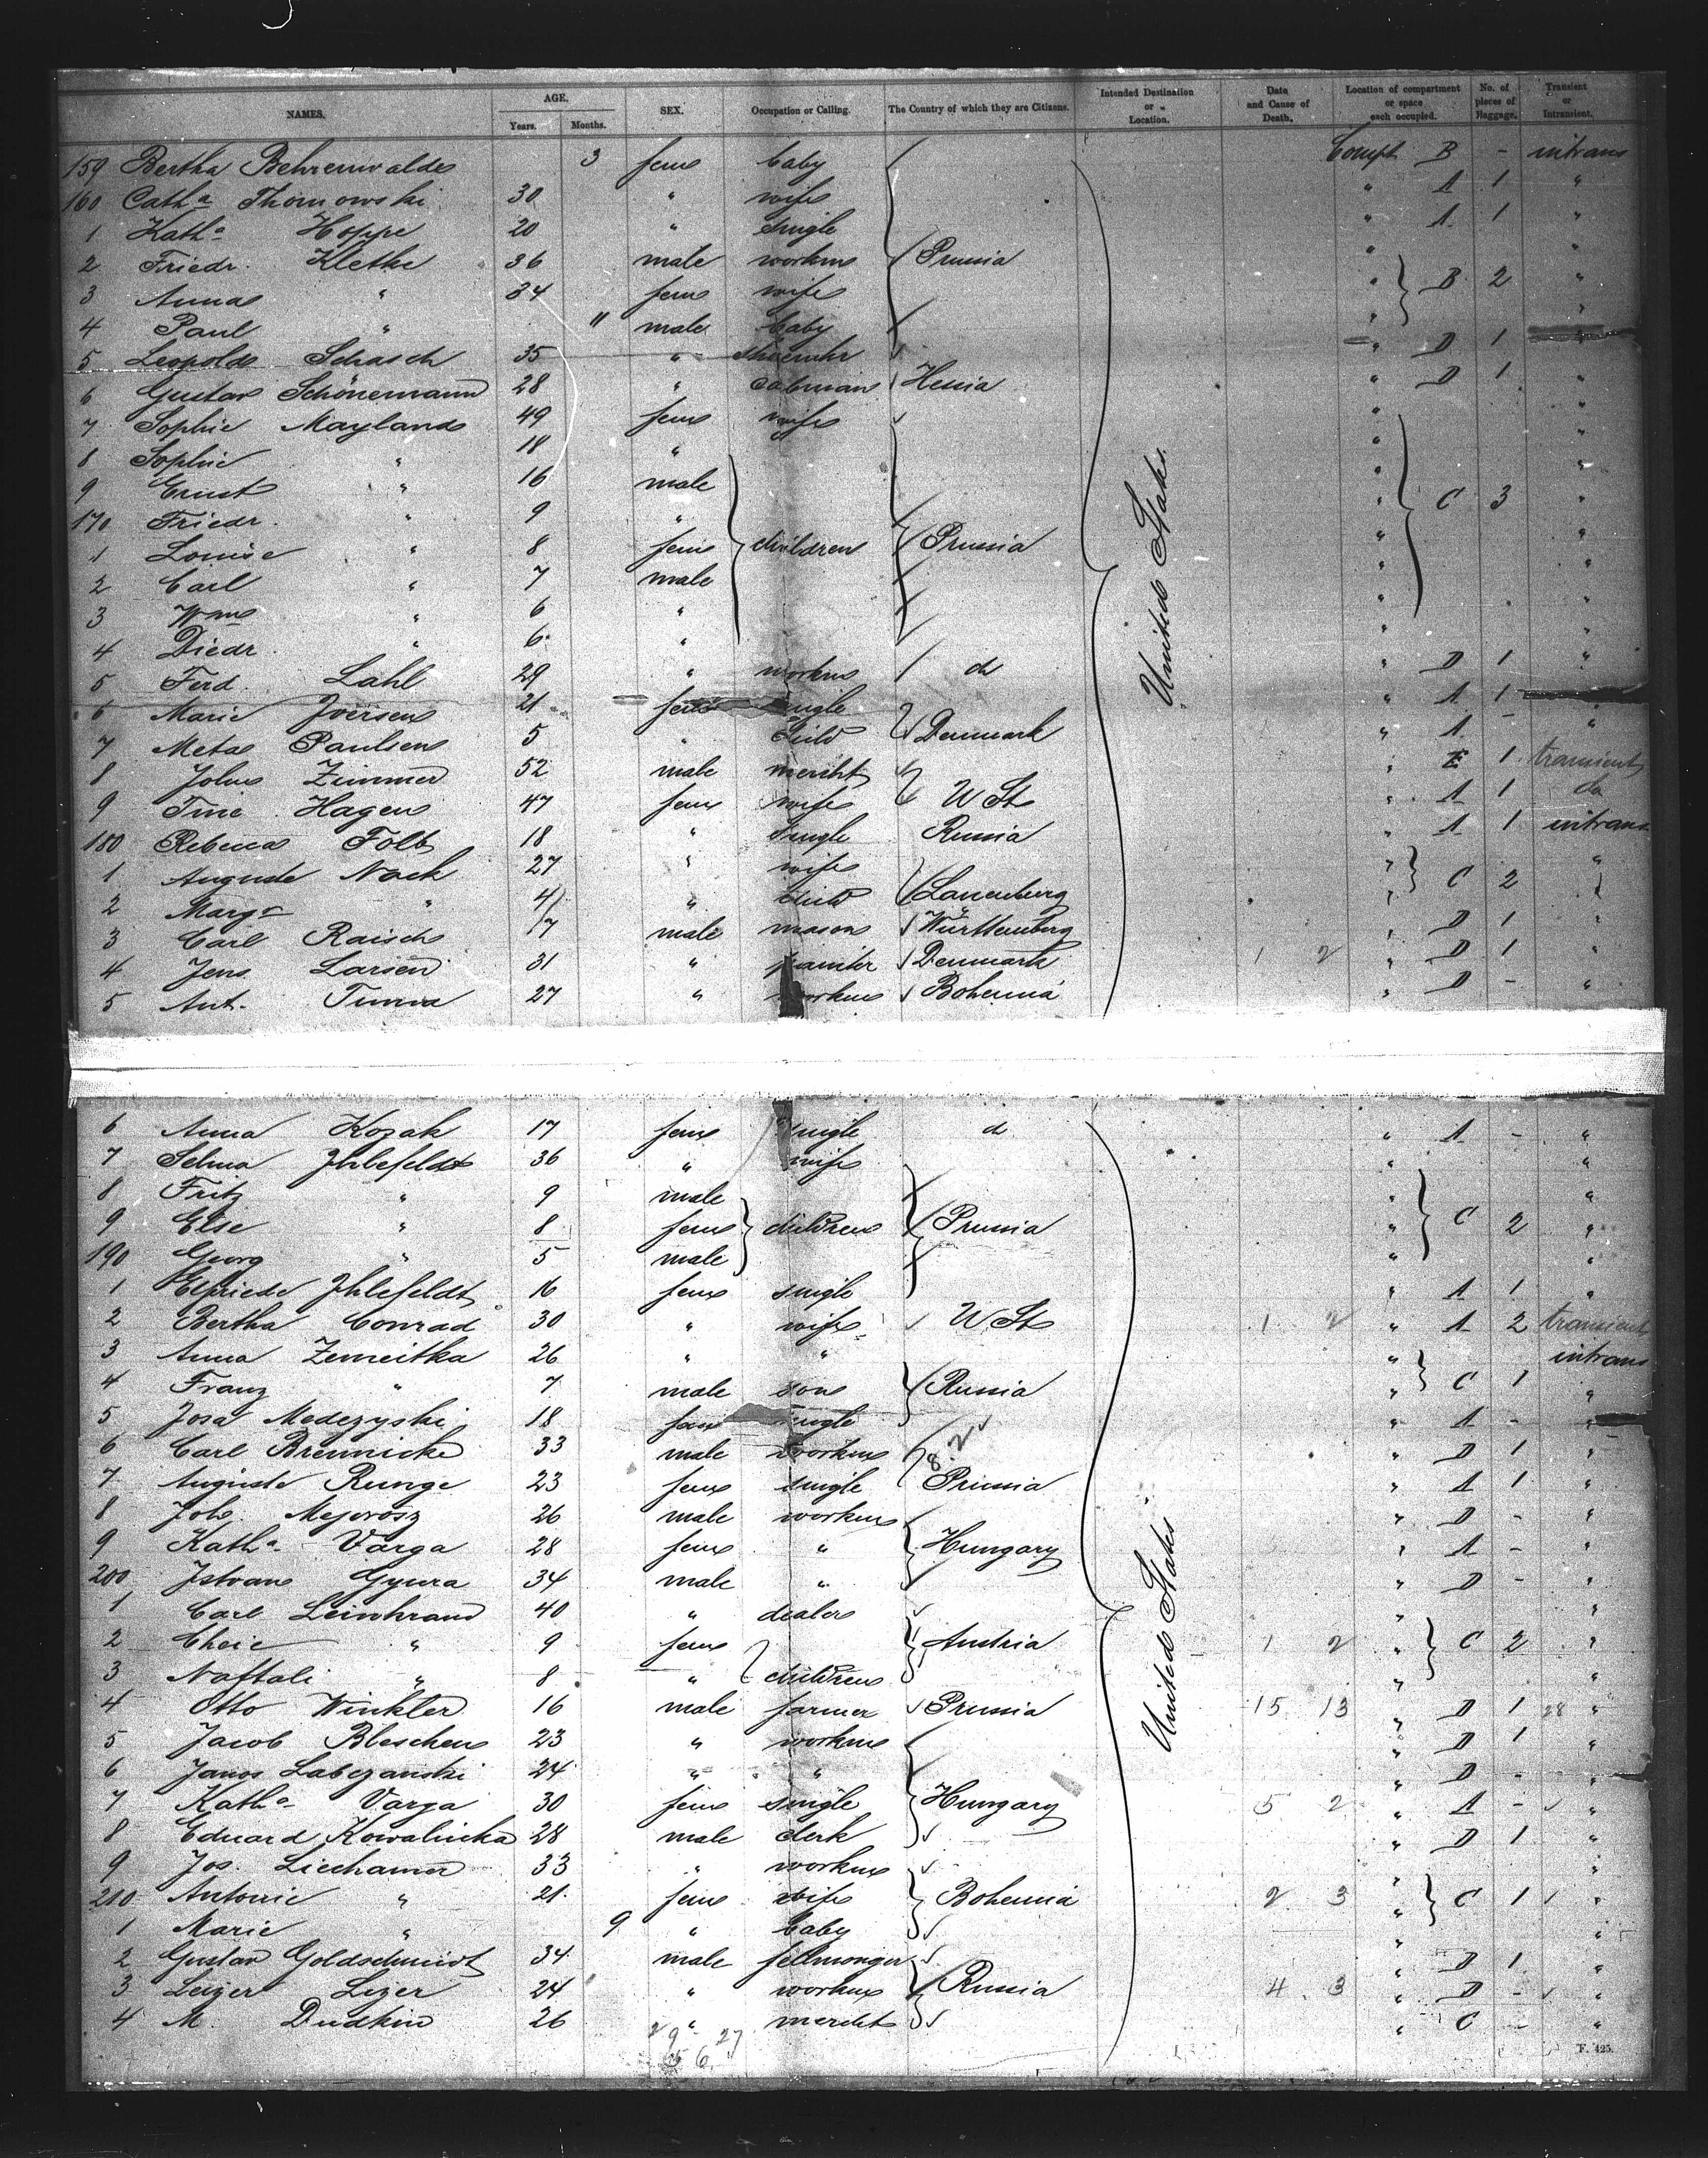 NAMES. AGE. Years. Months. SEX. Occupation or Calling. The Country of which they are Citizens. Intended Destination or Location. Date and Cause of Death. Location of compartment or space each occupied. No. of pieces of Baggage. Transient or Intransient.
159 Bertha Behrenwalde 3 fem baby Compt B - intrans
160 Cath a Thomowski 30 " wife " A 1 "
1 Kath a Hoppe 20 " single " A 1 "
2 Friedr. Kletke 36 male workm Prussia " "
3 Anna " 34 fem wife " B 2 "
4 Paul " 11 male baby " "
5 Leopold Schasch 35 " " D 1 "
6 Gustav Schönemann 28 " cabman Hessia " D 1 "
7 Sophie Mayland 49 fem wife " "
8 Sophie " 18 " " "
9 Ernst " 16 male " "
170 Friedr. " 9 " " C 3 "
1 Louise " 8 fem children Prussia " "
2 Carl " 7 male " "
3 Wm " 6 " " "
4 Diedr. " 6 " " "
5 Ferd. Lahl 29 " workm do " D 1 "
6 Marie Joersen 21 fem single " A 1 "
7 Meta Paulsen 5 " child Denmark " A - "
8 John Zimmer 52 male mercht " E 1 transient
9 Tine Hagen 47 fem wife U St " A 1 do
180 Rebecca Folb 18 " single Russia " A 1 intrans
1 Auguste Nack 27 " wife " "
2 Marg a " 4 " child Lauenburg " C 2 "
3 Carl Raisch 17 male mason Württemberg " D 1 "
4 Jens Larsen 31 " painter Denmark 1 2 " D 1 "
5 Ant. Tuma 27 " workm Bohemia " D - "
United States.
6 Anna Kozak 17 fem single do " A - "
7 Selma Ihlefeldt 36 " wife " "
8 Fritz " 9 male " "
9 Else " 8 fem children Prussia " C 2 "
190 Georg " 5 male " "
1 Elfriede Ihlefeldt 16 fem single " A 1 "
2 Bertha Conrad 30 " wife U St 1 2 " A 2 transient
3 Anna Zemeitka 26 " " " intrans
4 Franz " 7 male son Russia " C 1 "
5 Josa Medezyski 18 fem single " A - "
6 Carl Brennicke 33 male workm 8.2 " D 1 "
7 Auguste Runge 23 fem single Prussia " A 1 "
8 Joh. Mejorosz 26 male workm " D - "
9 Kath a Varga 28 fem " Hungary " A - "
200 Istvan Gyura 34 male " " D - "
1 Carl Leinkram 40 " dealer " "
2 Cheie " 9 fem Austria 1 2 " C 2 "
3 Naftali " 8 " children " "
4 Otto Winkler 16 male farmer Prussia 15 13 " D 1 28 "
5 Jacob Bleschen 23 " workm " D 1 "
6 Janos Labezanski 24 " " " D - "
7 Kath a Varga 30 fem single Hungary 5 2 " A - "
8 Eduard Kowalnicka 28 male clerk " D 1 "
9 Jos. Liechamer 33 " workm " "
210 Antonie " 21 fem wife Bohemia 2 3 " C 1 "
1 Marie " 9 " baby " "
2 Gustav Goldschmidt 34 male fellmonger " D 1 "
3 Leizer Lizer 24 " workm Russia 4 3 " D - "
4 M. Dudkin 26 " mercht " C - "
United States.
29 27
56
F. 425.